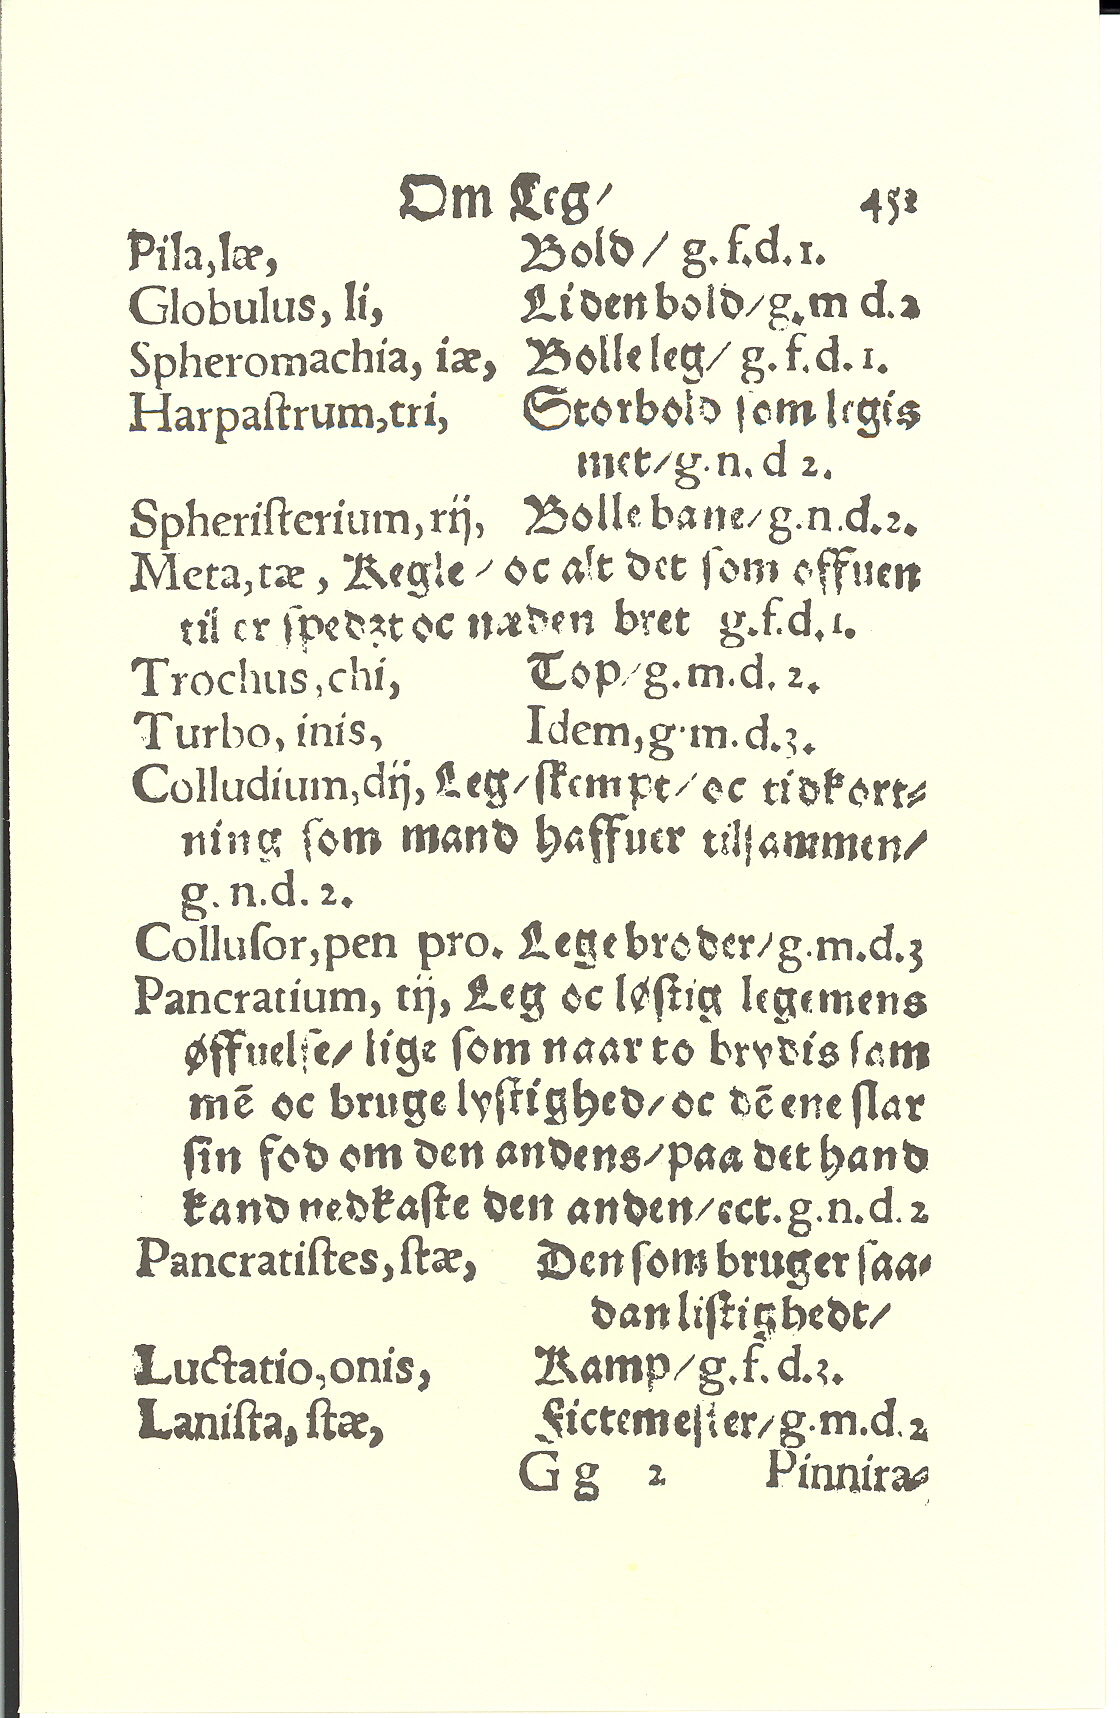 Om Leg/ 452
Pila,læ, Bold/ g.f.d.1.
Globulus, li, Liden bold/g.m d.2
Spheromachia, iæ, Bolle leg/ g.f.d.1.
Harpaſtrum,tri, Storbold ſom legis
met/g.n.d 2.
Spheriſterium,rij, Bolle bane/g.n.d.2.
Meta,tæ, Kegle/ oc alt det ſom offuen
til er ſpedzt oc næden bret g.f.d.1.
Trochus,chi, Top/g.m.d.2.
Turbo, inis, Idem,g.m.d.3.
Colludium,dij, Leg/ſkempt/oc tidkort⸗
ning ſom mand haffuer tilſammen/
g.n.d.2.
Colluſor,pen pro. Legebroder/g.m.d.3
Pancratium, tij, Leg oc løſtig legemens
øffuelſe/ lige ſom naar to brydis ſam
mē oc bruge lyſtighed/oc dē ene ſlar
ſin fod om den andens/paa det hand
kand nedkaſte den anden/ect.g.n.d.2
Pancratiſtes,ſtæ, Den ſom bruger ſaa⸗
dan liſtighedt/
Luctatio,onis, Kamp/g.f.d.3.
Laniſta, ſtæ, Fictemeſter/g.m.d.2
G g 2 Pinnira⸗